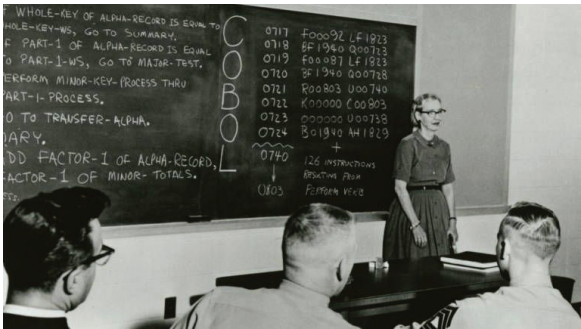 F WHOLE-KEY OF ALPHA-RECORD IS EQUAL TO
HOLE-KEY-WS, GO TO SUMMARY.
F PART-1 OF ALPHA-RECORD IS EQUAL
O PART-1-WS, GO TO MAJOR-TEST.
ERFORM MINOR-KEY-PROCESS THRU
PART-1-PROCESS.
O TO TRANSFER-ALPHA.
ARY.
DD FACTOR-1 OF ALPHA-RECORD,
ACTOR-1 OF MINOR-TOTALS.
COBOL
0717 F00092 LF1823
0718 BF1940 Q00723
0719 F00087 LF1823
0720 BF1940 Q00728
0721 R00803 U00740
0722 K00000 C00803
0723 000000 U00738
0724 B01940 AH1829
+
0740 126 INSTRUCTIONS
↓ RESULTING FROM
0803 PERFORM VERB